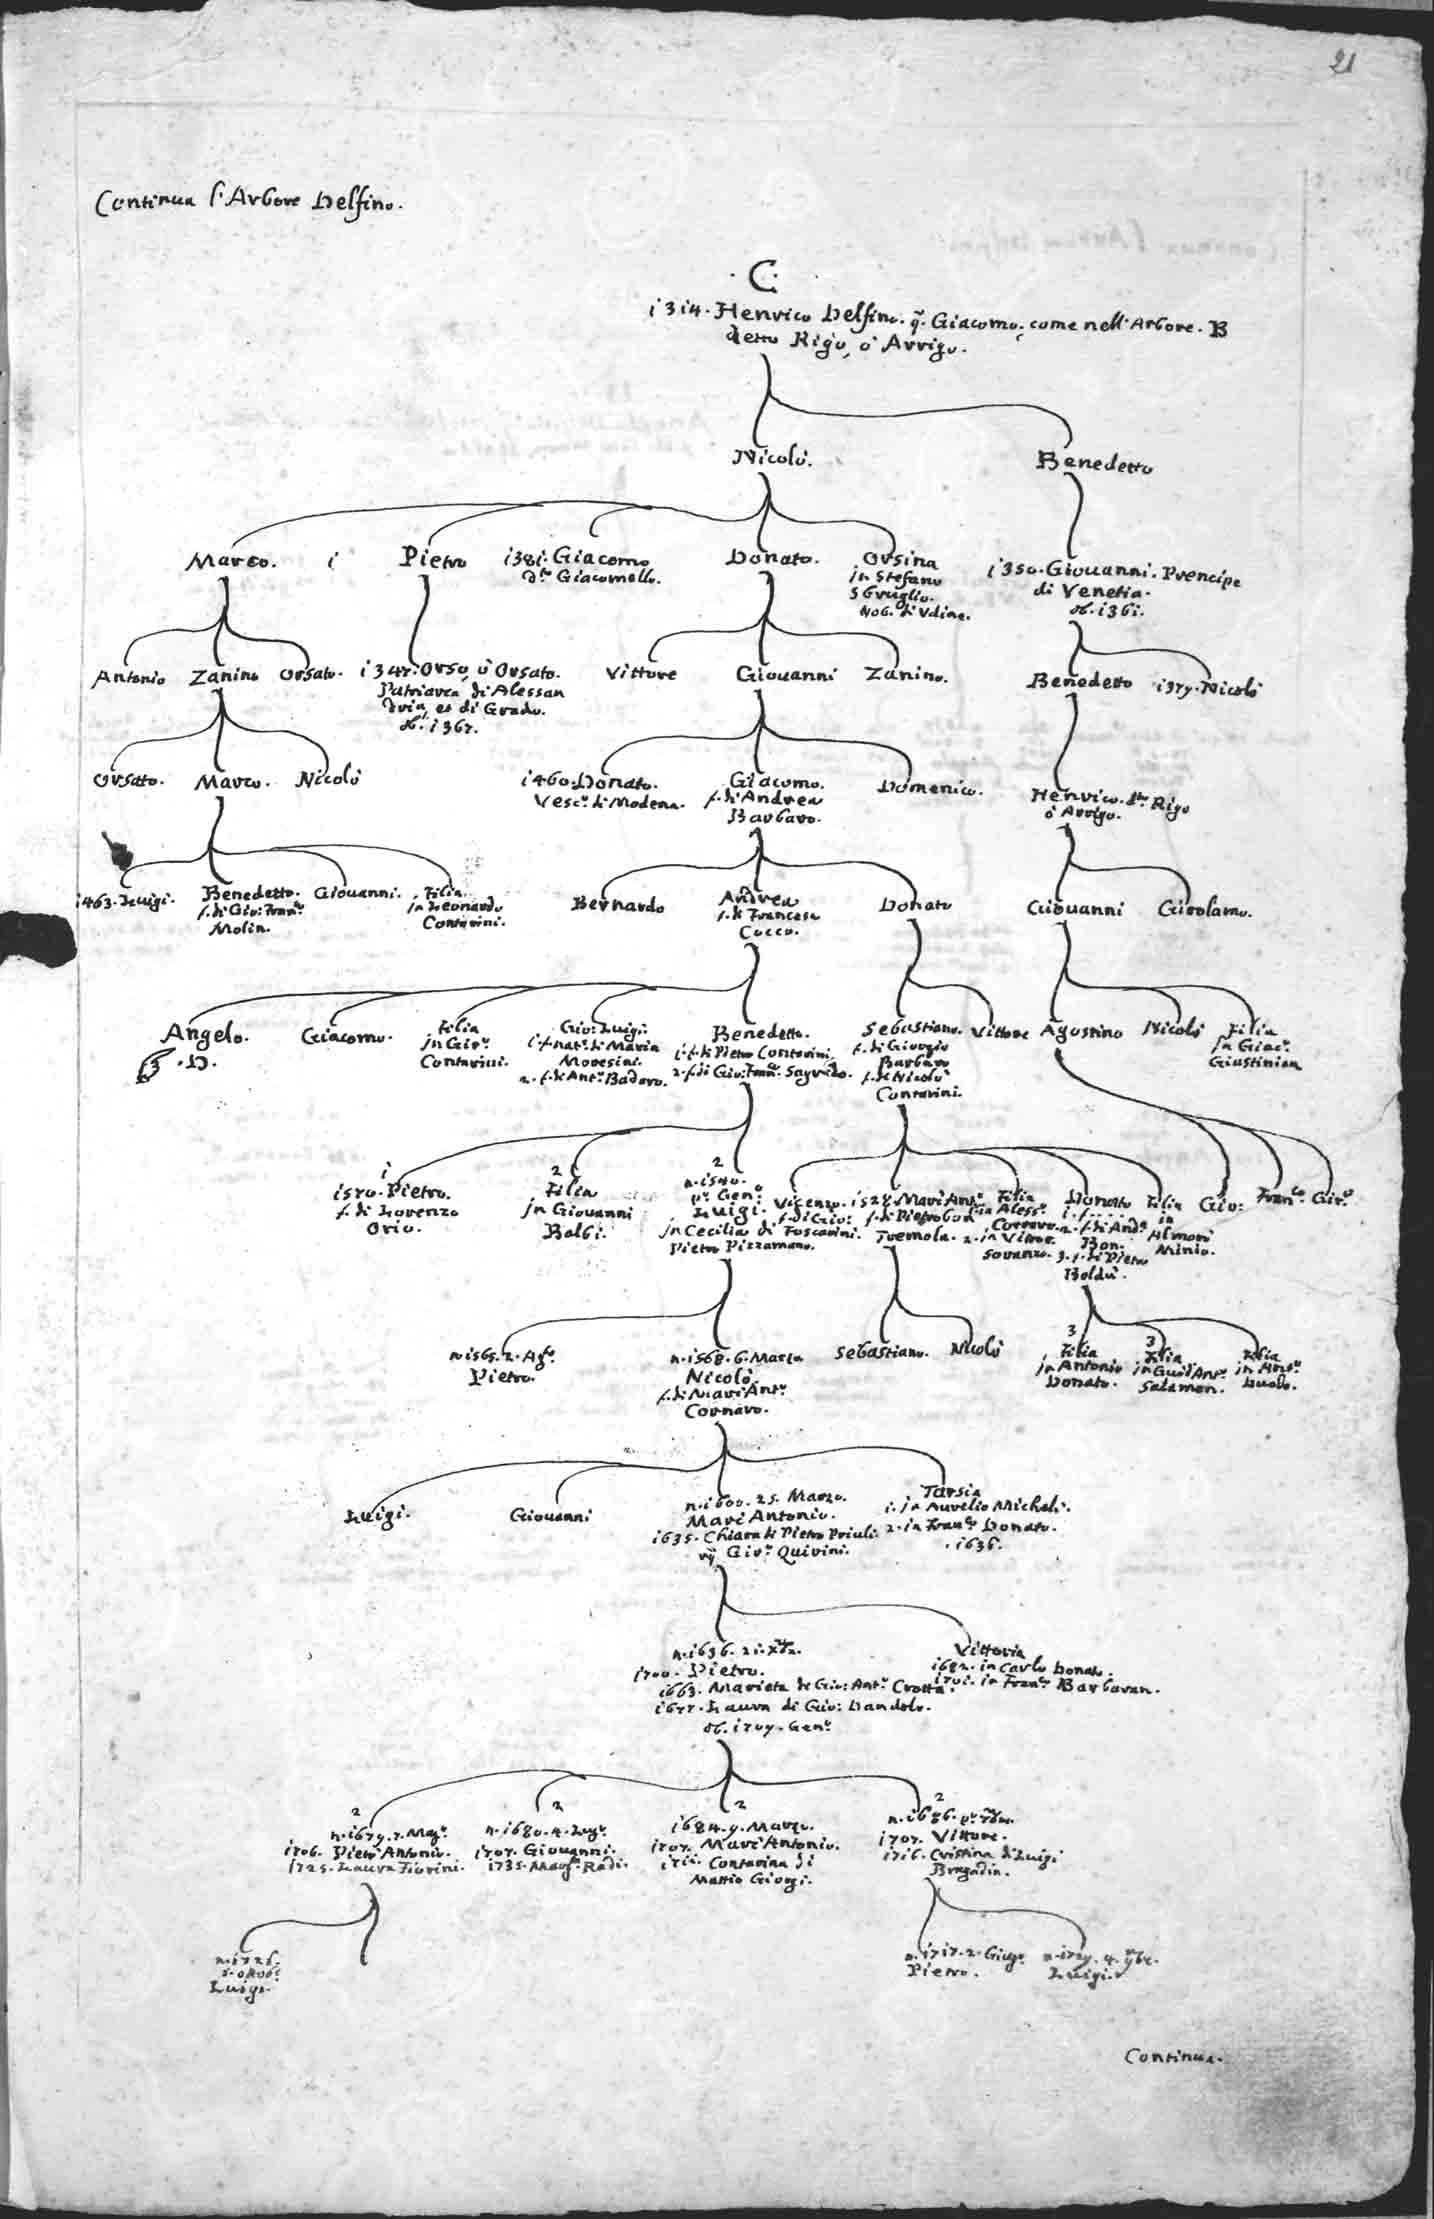 21
Continua l'Arbore Delfino.
·C·
1314. Henrico Delfino. q. Giacomo, come nell'Arbore. B
detto Rigo, ò Arrigo.
Nicolò.
Benedetto
Marco.
i
Pietro
1381. Giacomo
dto Giacomello.
Donato.
Orsina
in Stefano
Sbruglio.
Nob. di Udine.
1350. Giovanni. Prencipe
di Venetia.
ob. 1361.
Antonio
Zanino
Orsato.
1347. Orso, ò Orsato.
Patriarca di Alessan
dria, et di Grado.
ob. 1367.
Vittore
Giovanni
Zanino.
Benedetto
1379. Nicolò
Orsatto.
Marco.
Nicolò
1460. Donato.
Vesco. di Modena.
Giacomo.
f. di Andrea
Barbaro.
Domenico.
Henrico. dto Rigo
ò Arrigo.
1463. Luigi.
Benedetto.
f. di Gio: Franco
Molin.
Giovanni.
Filia
in Leonardo
Contarini.
Bernardo
Andrea
f. di Francesco
Cocco.
Donato
Giovanni
Girolamo.
Angelo.
·D.
Giacomo.
Filia
in Giro.
Contarini.
Gio: Luigi.
1. f. nat. di Maria
Moresini.
2. f. di Anto. Badoro.
Benedetto.
1. f. di Pietro Contarini.
2. f. di Gio: Franco. Sagredo.
Sebastiano.
f. di Giorgio
Barbaro
f. di Nicolò
Contarini.
Vittore
Agustino
Nicolò
Filia
in Giaco.
Giustinian
1
1570. Pietro.
f. di Lorenzo
Orio.
2
Filia
in Giovanni
Balbi.
2
n. 1540.
po. Geno.
Luigi.
in Cecilia di
Pietro Pizzamano.
Vicenzo.
f. di Gio:
Foscarini.
1528. Marc'Anto.
f. di Pietro Bon
Tremola.
Filia
1. in Alesso.
Corraro.
2. in Vittor
Soranzo.
Donato
1. f. . . . . .
2. f. di Anda.
Bon.
3. f. di Pietro
Boldù.
Filia
in
Almorò
Minio.
Gio:
Franco.
Giro.
n. 1565. 2. Ago.
Pietro.
n. 1568. 6. Marzo
Nicolò
f. di Marc'Anto.
Cornaro.
Sebastiano.
Nicolò
3
Filia
in Antonio
Donato.
3
Filia
in Gusdi Anto.
Salamon.
Filia
in Anso.
Duodo.
Luigi.
Giovanni
n. 1600. 25. Marzo.
Marc'Antonio.
1635. Chiara di Pietro Priuli
Gio. Quirini.
Tarsia
1. in Aurelio Micheli.
2. in Franco. Donato.
1636.
n. 1636. 21. Xbre.
1700. Pietro.
1663. Marieta de Gio: Anto. Crotta.
1677. Laura di Gio: Dandolo.
ob. 1709. Geno.
Vittoria
1682. in Carlo Donato.
1701. in Franco. Barbaran.
2
n. 1679. 7. Mago.
1706. Pietr'Antonio.
1725. Laura Fiorini.
2
n. 1680. 4. Lugo.
1707. Giovanni.
1735. Marga. Radi.
2
1684. 9. Marzo.
1707. Marc'Antonio.
1711. Contarina di
Mattio Giorgi.
2
n. 1686. po.
1707. Vittore.
1716. Cristina di Luigi
Bragadin.
n. 1726.
5. ottobe.
Luigi.
n. 1717. 2. Giugo.
Pietro.
n. 1729. 4. 9bre.
Luigi.
Continua.